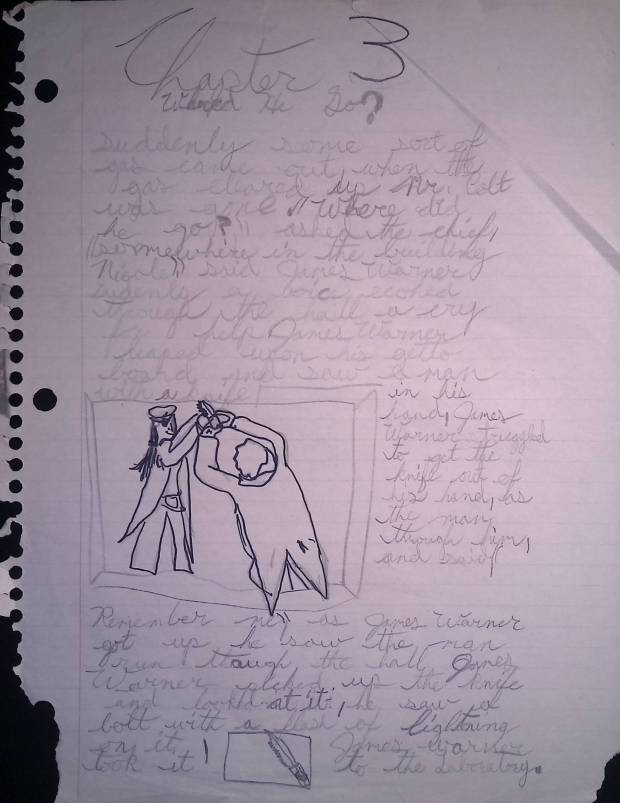 Chapter 3
He Go?
Suddenly some sort of
gas came out, when the
gas cleared up Mr. Bolt
was gone. "Where did
he go?" asked the chief,
"somewhere in the building
Nicole" said James Warner
Sudenly a voice echoed
through the hall a cry
for help, James Warner
leaped upon his
board and saw a man
with a knife
in his
hand, James
Warner struggled
to get the
knife out of
his hand, as
the man
through him,
and said,
Remember me" as James Warner
got up he saw the man
run the hall, James
Warner up the knife
and looked at it, he saw a
bolt with a flash of lightning
on it! James Warner
took it to the Laboratory.